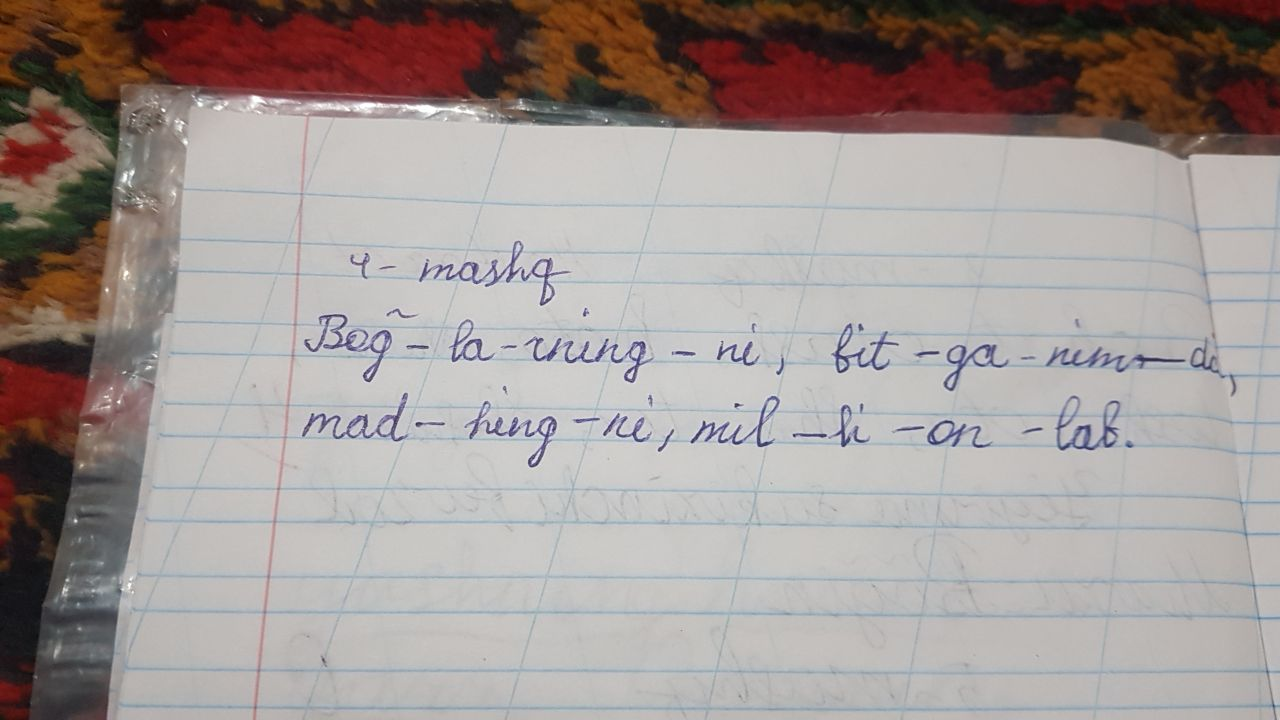 4- mashq
Bog̃ - la -rning - ni, bit - ga - nim - da,
mad - hing - ni, mil - li - on - lab.